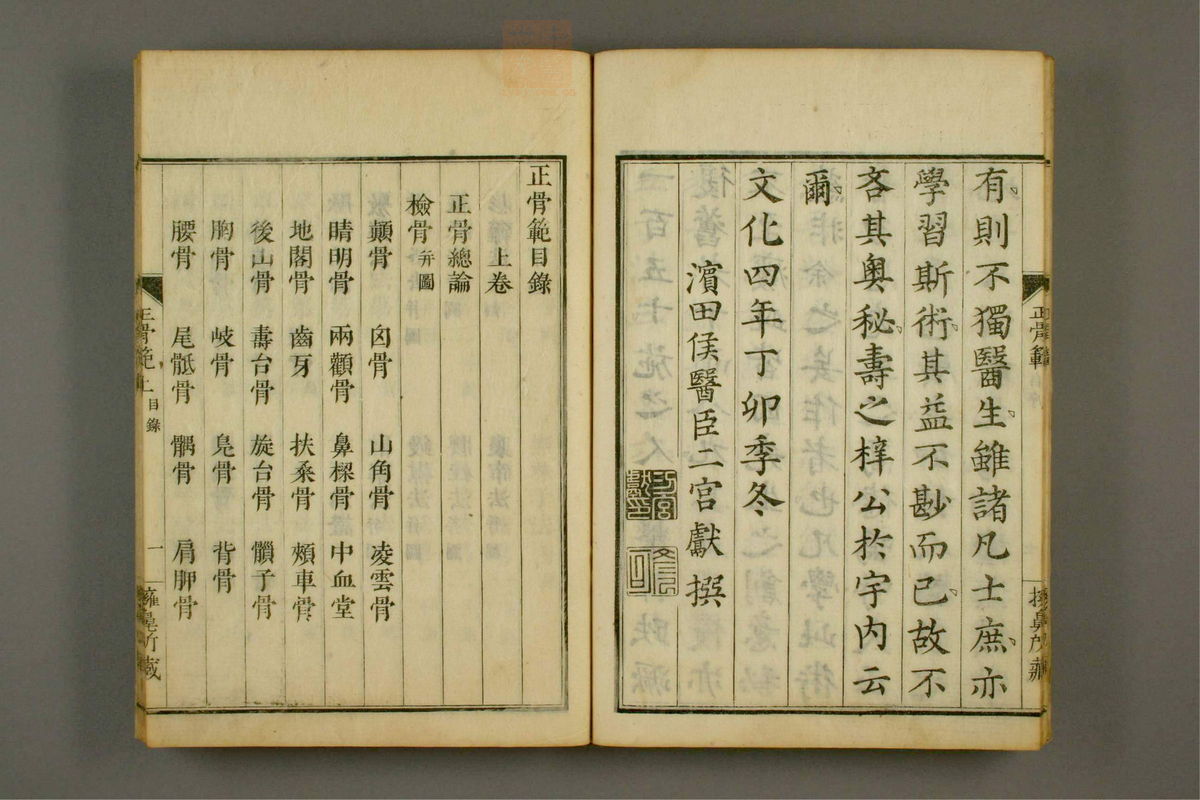 有則不獨醫生雖諸凡士庶亦
學習斯術其益不尠而已故不
吝其奧秘壽之梓公於宇内云
爾
文化四年丁卯季冬
濱田侯醫臣二宮獻撰
正骨範
正骨範目錄
上卷
正骨總論
檢骨 并圖
顚骨 囟骨 山角骨 凌雲骨
睛明骨 兩顴骨 鼻樑骨 中血堂
地閣骨 齒牙 扶桑骨 頰車骨
後山骨 壽台骨 旋台骨 髑子骨
胸骨 岐骨 鳧骨 背骨
腰骨 尾骶骨 髃骨 肩胛骨
正骨範上 目錄 一